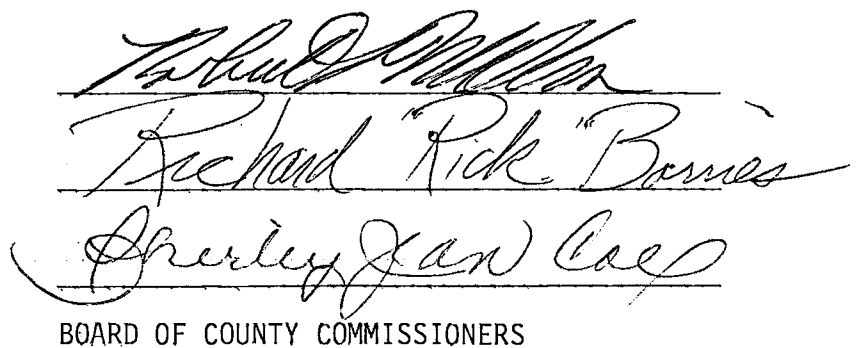 Richard "Rick" Barnes
Shirley Jean Coe
BOARD OF COUNTY COMMISSIONERS